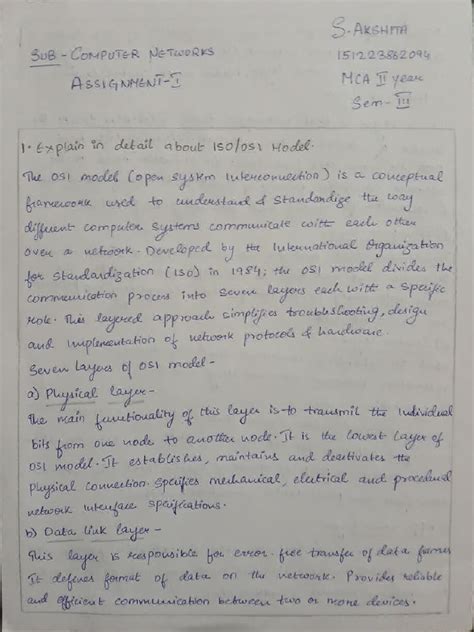 S. AKSHITA
SUB - COMPUTER NETWORKS
151223862094
ASSIGNMENT-I
MCA II year
Sem - III
1. Explain in detail about ISO/OSI Model.
The OSI model (open system Interconnection) is a conceptual
framework used to understand & standardize the way
different computer systems communicate with each other
over a network. Developed by the International Organization
for Standardization (ISO) in 1984; the OSI model divides the
communication process into seven layers each with a specific
role. This layered approach simplifies troubleshooting, design
and implementation of network protocols & hardware.
Seven Layers of OSI model -
a) Physical layer -
The main functionality of this layer is to transmit the individual
bits from one node to another node. It is the lowest layer of
OSI model. It establishes, maintains and deactivates the
physical connection. Specifies mechanical, electrical and procedural
network interface specifications.
b) Data link layer -
This layer is responsible for error-free transfer of data frames
It defines format of data on the network. Provides reliable
and efficient communication between two or more devices.